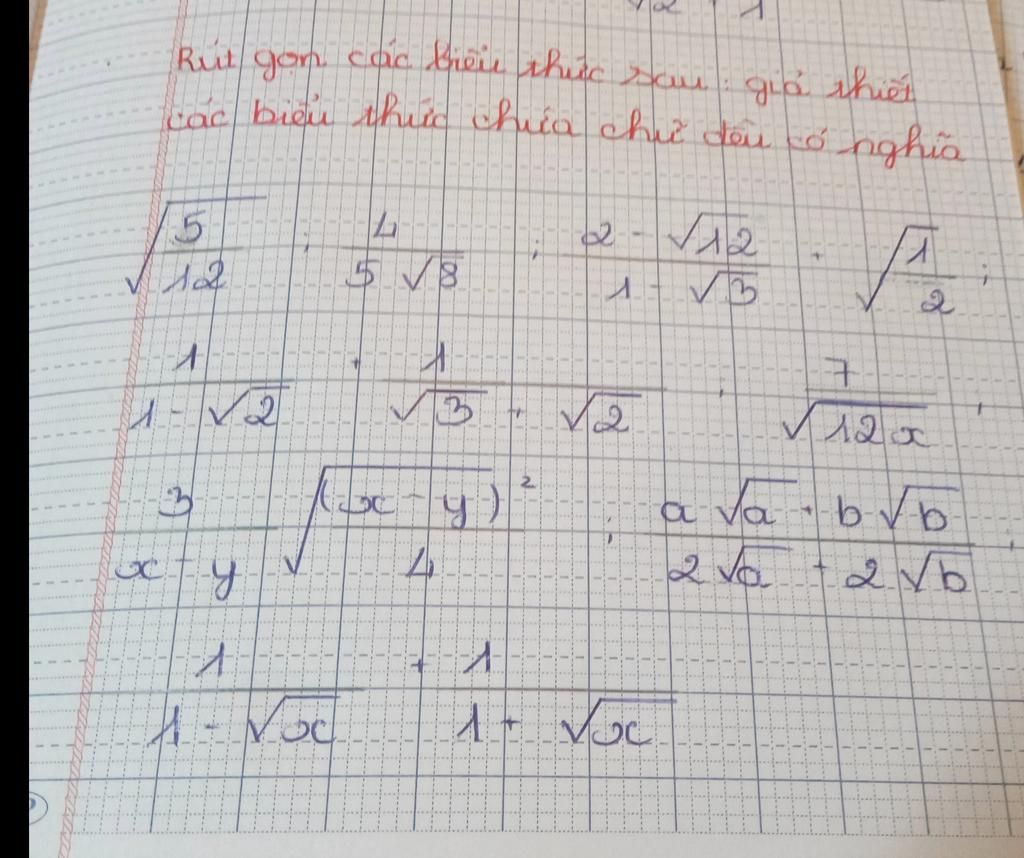 √2 + 1
Rút gọn các biểu thức sau: giả thiết
các biểu thức chứa chữ đều có nghĩa
√(5/12) ; 4/(5√8) ; (2 - √12)/(1 - √3) · √(1/2) ;
1/(1 - √2) + 1/(√3 + √2) ; 7/√(12x) ;
3/(x - y) √((x - y)²/4) ; (a√a + b√b)/(2√a + 2√b) ;
1/(1 - √x) + 1/(1 + √x)